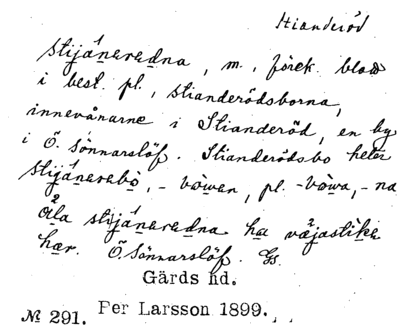 Stianderöd
stijáneredna, m., förek. blott
i best. pl., stianderödsborna,
innevånarne i Stianderöd, en by
i Ö. Sönnarslöf. Stianderödsbo heter
stijánerebò, -bòwen, pl. -bòwa, -na
Ála stijáneredna ha væjastike
hær. Ö Sönnarslöf. Gs.
Gärds hd.
№ 291. Per Larsson 1899.